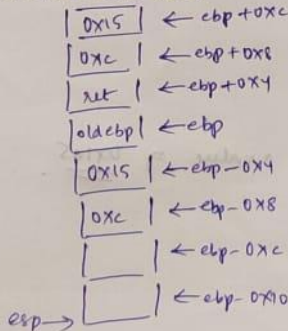 0x15 ← ebp+0xc
0xc ← ebp+0x8
ret ← ebp+0x4
oldebp ← ebp
0x15 ← ebp-0x4
0xc ← ebp-0x8
← ebp-0xc
esp→ ← ebp-0x10